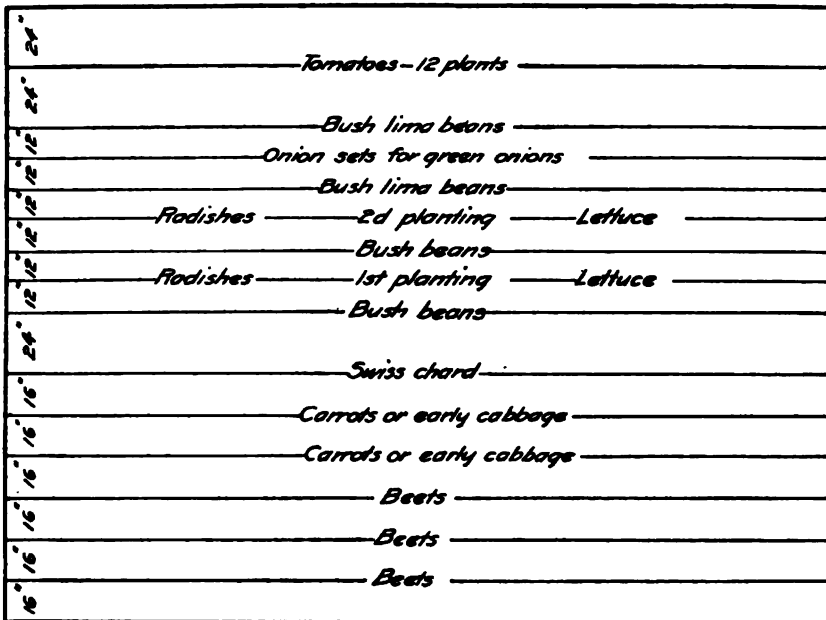 24"
Tomatoes - 12 plants
24"
Bush lima beans
12"
Onion sets for green onions
12"
Bush lima beans
12"
Radishes 2d planting Lettuce
12"
Bush beans
12"
Radishes 1st planting Lettuce
12"
Bush beans
24"
Swiss chard
16"
Carrots or early cabbage
16"
Carrots or early cabbage
16"
Beets
16"
Beets
16"
Beets
16"